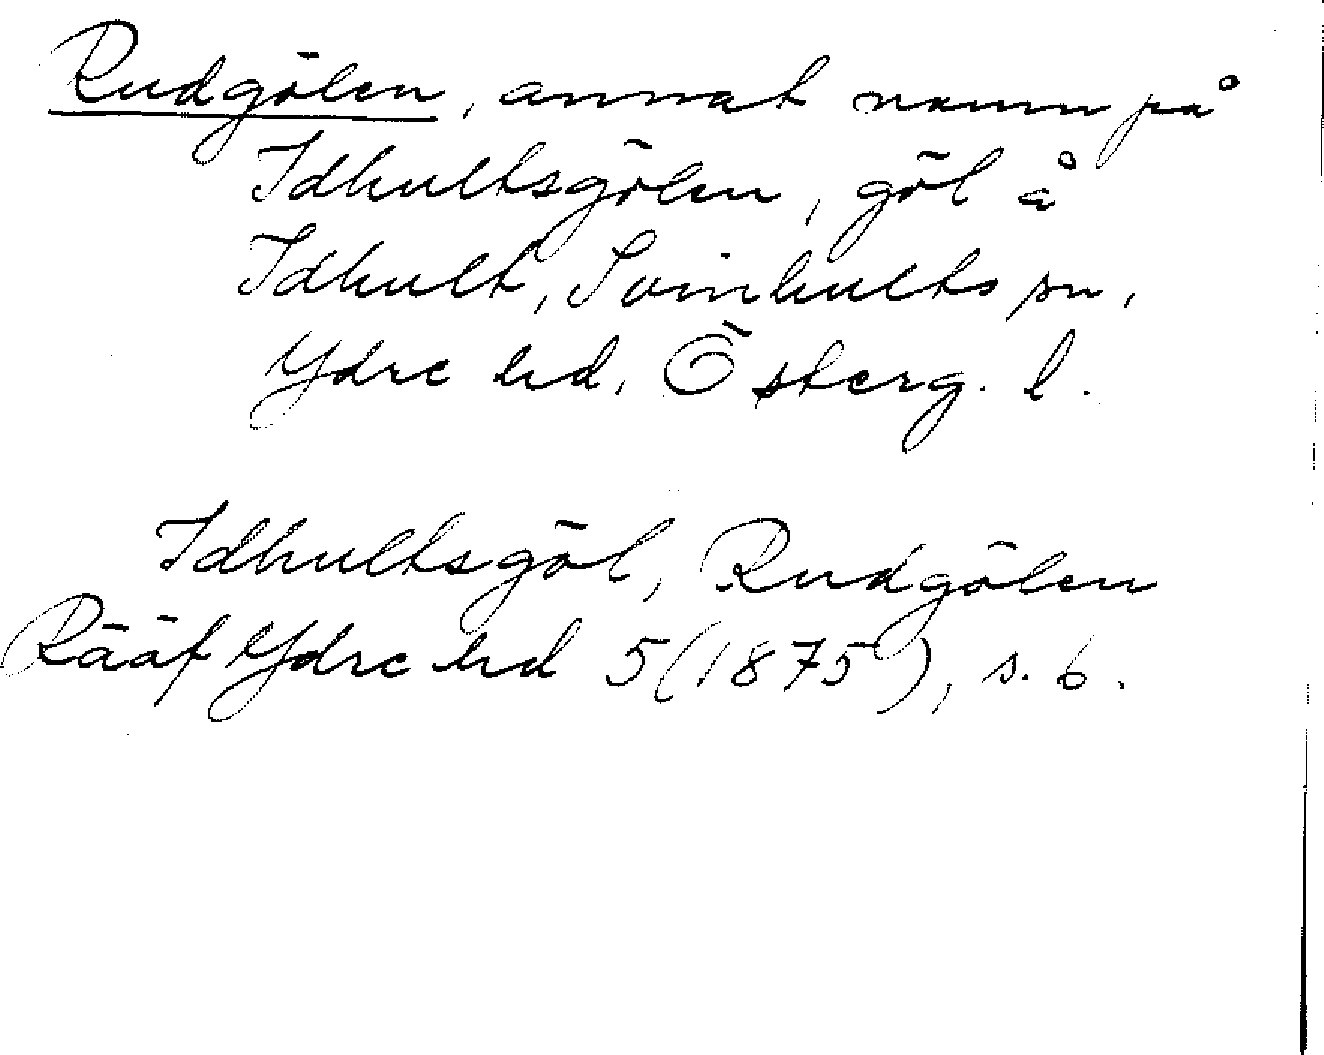 Rudgölen, annat namn på
Idhultsgölen, göl å
Idhult, Svinhults sn,
Ydre hd, Österg. l.
Idhultsgöl, Rudgölen
Rääf Ydre hd 5(1875), s. 6.